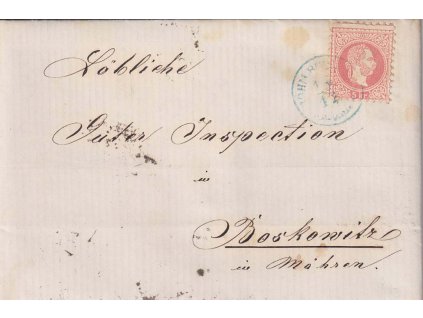 Löbliche
Güter Inspection
in
Boskowitz
in Mähren.